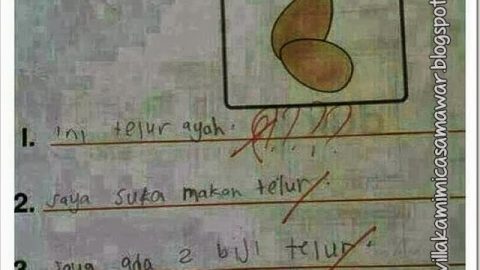 1. ini telur ayah. ????
2. saya suka makan telur.
3. saya ada 2 biji telur.
villakamimicasamawar.blogspot